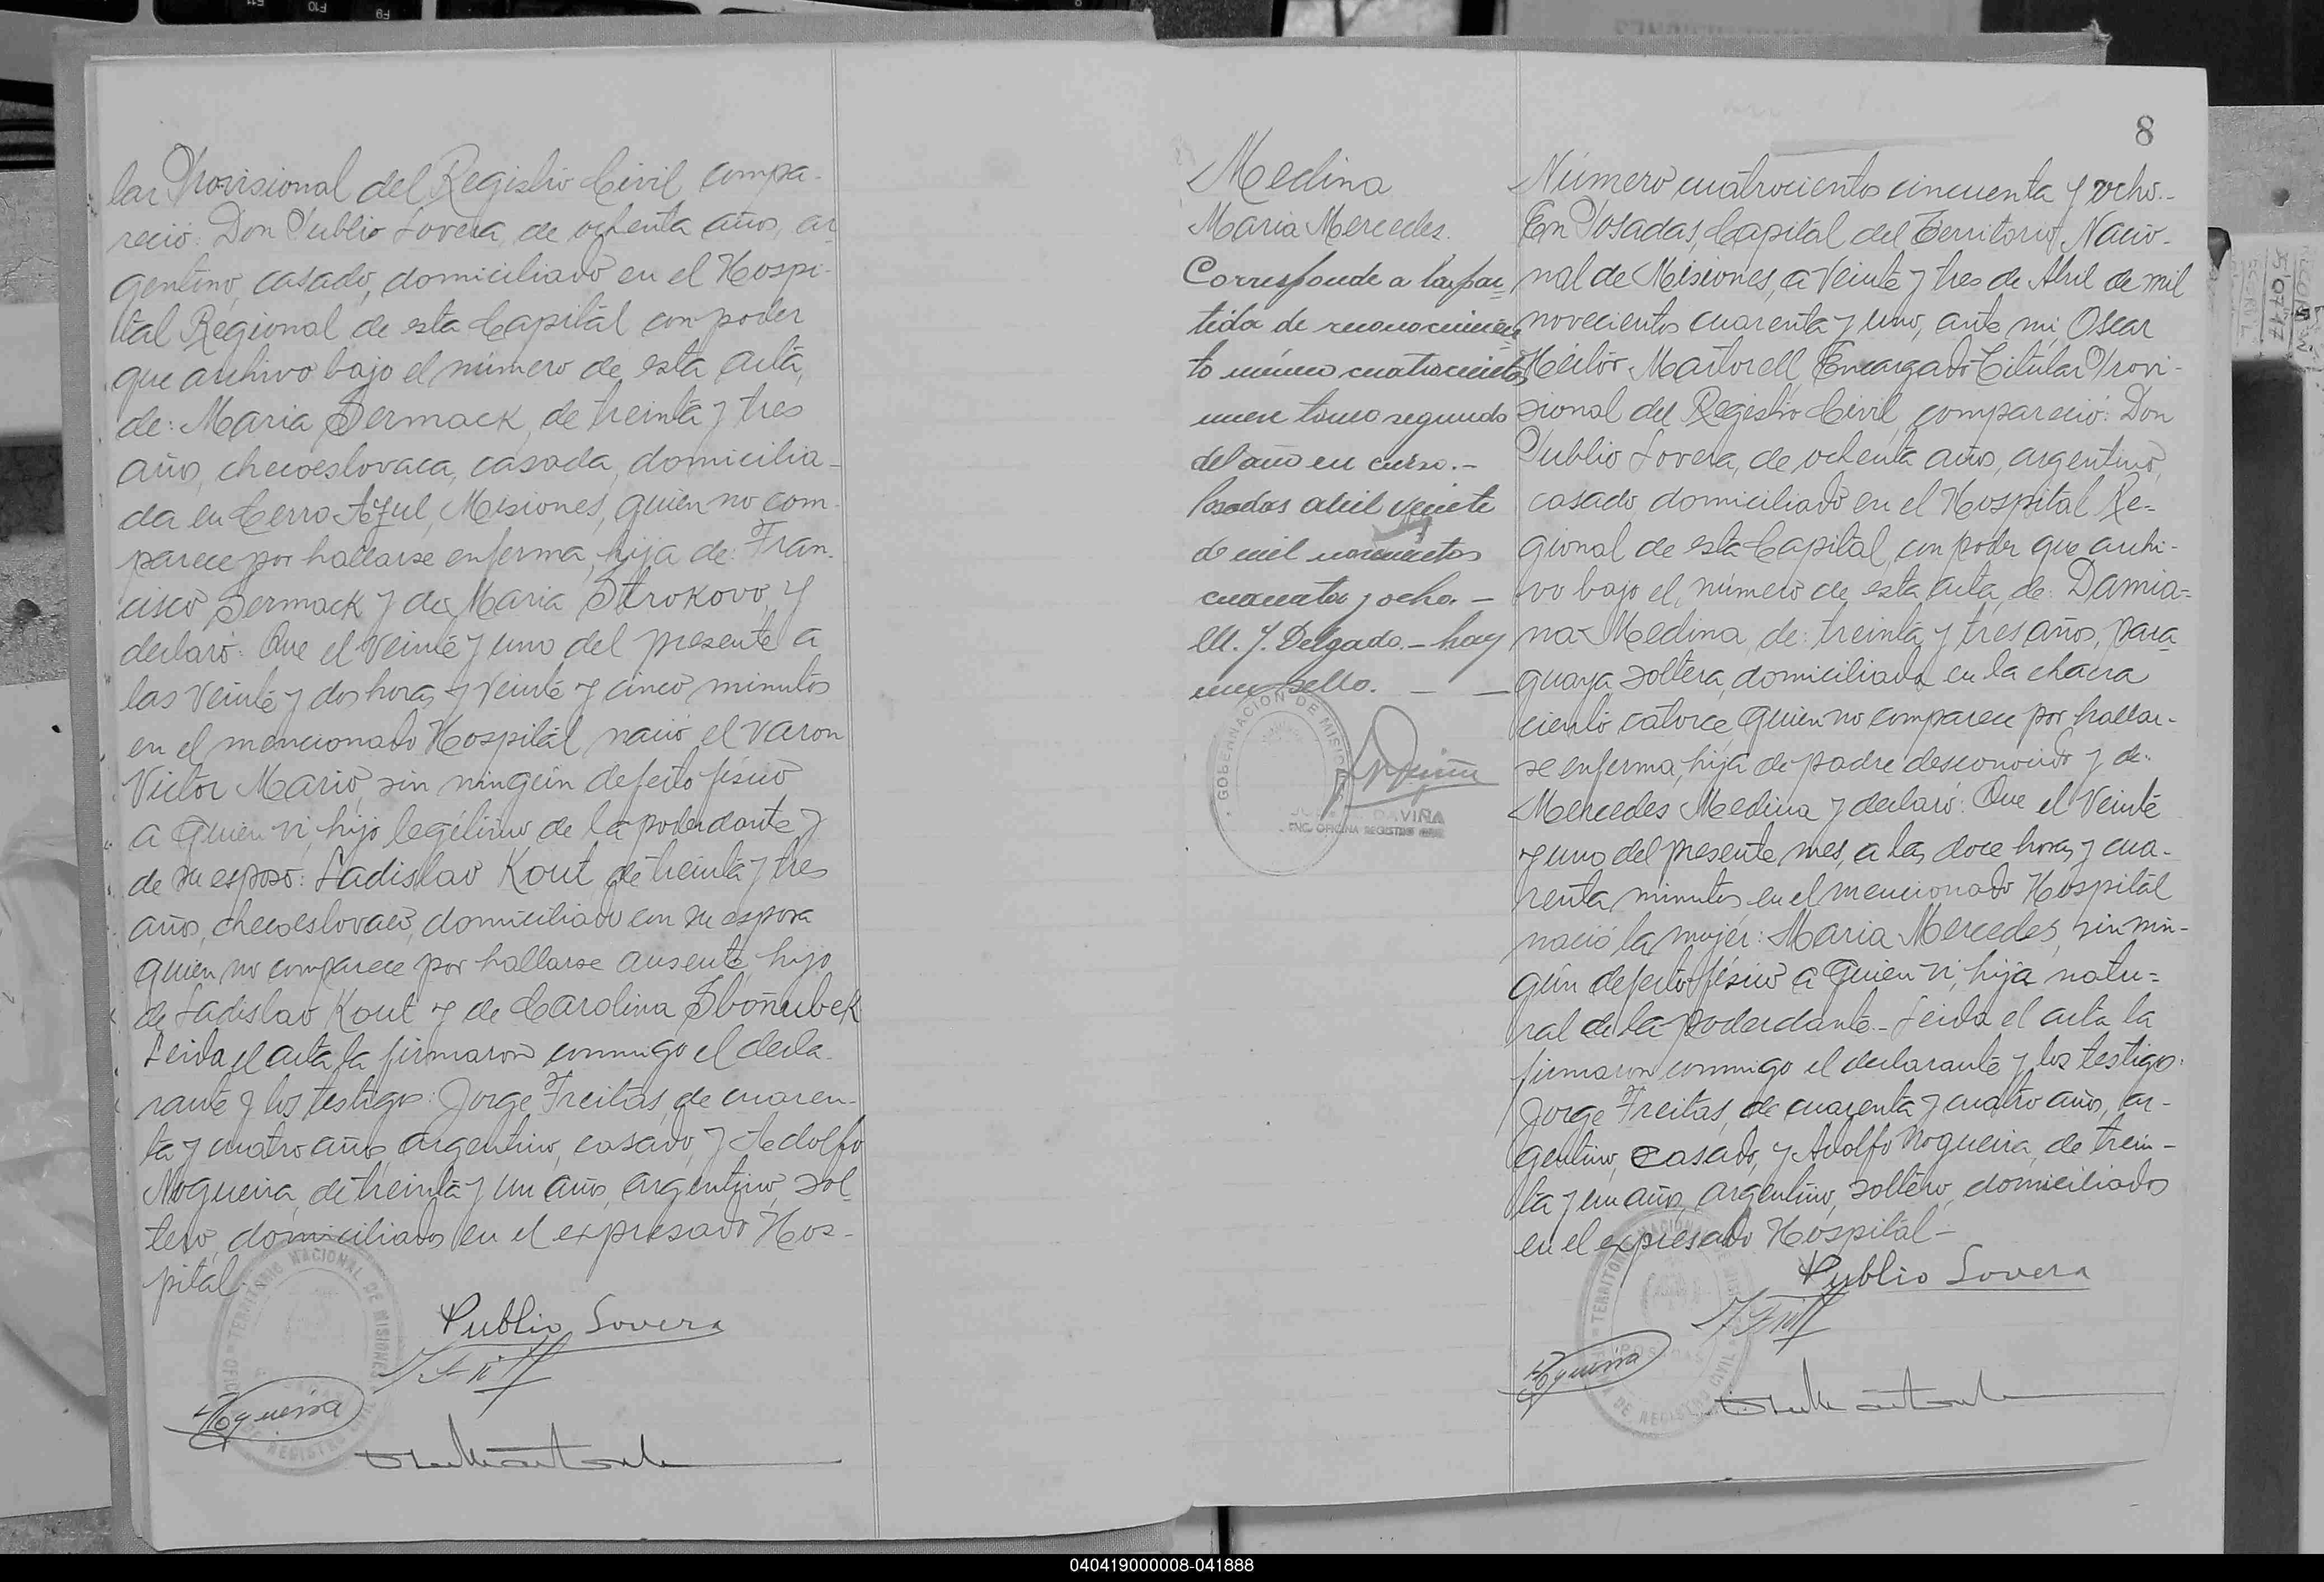 lar Provisional del Registro Civil compa-
reció: Don Publio Lovera, de ochenta años, ar-
gentino, casado, domiciliado en el Hospi-
tal Regional de esta Capital con poder
que archivo bajo el número de esta acta,
de: Maria Sermack, de treinta y tres
años, checoeslovaca, casada, domicilia-
da en Cerro Azul, Misiones, quien no com-
parece por hallarse enferma, hija de: Fran-
cisco Sermack y de Maria Strokovo, y
declaró: Que el Veinte y uno del presente a
las Veinte y dos horas y Veinte y cinco minutos
en el mencionado Hospital nació el varon
Victor Mario, sin ningún defecto físico
a quien vi, hijo legítimo de la poderdante y
de su esposo: Ladislao Kout de treinta y tres
años, checoeslovaco, domiciliado con su esposa
quien no comparece por hallarse ausente, hijo
de Ladislao Kout y de Carolina Sboñubek
Leida el acta la firmaron conmigo el decla-
rante y los testigos: Jorge Freitas, de cuaren-
ta y cuatro años, argentino, casado, y Adolfo
Nogueira, de treinta y un años, argentino, sol-
tero, domiciliados en el expresado Hos-
pital.
TERRITORIO NACIONAL DE MISIONES
DE REGISTRO CIVIL
Publio Lovera
Nogueira
Medina
Maria Mercedes.
Corresponde a la par-
tida de reconocimien
to número cuatrocientos
nueve tomo segundo
del año en curso.-
Posadas abril veinte
de mil novecientos
cuarenta y ocho.-
M. J. Delgado.- hay
un sello. - -
GOBERNACION DE MISIONES
DAVIÑA
ENC. OFICINA REGISTRO CIVIL
8
Número cuatrocientos cincuenta y ocho.-
En Posadas, Capital del Territorio Nacio-
nal de Misiones, a Veinte y tres de Abril de mil
novecientos cuarenta y uno, ante mi, Oscar
Héctor Martorell, Encargado Titular Provi-
sional del Registro Civil, compareció: Don
Publio Lovera, de ochenta años, argentino,
casado domiciliado en el Hospital Re-
gional de esta Capital, con poder que archi-
vo bajo el número de esta acta, de: Damia-
na Medina, de: treinta y tres años, para-
guaya soltera, domiciliada en la chacra
ciento catorce, quien no comparece por hallar-
se enferma, hija de padre desconocido y de:
Mercedes Medina y declaró: Que el Veinte
y uno del presente mes, a las doce horas y cua-
renta minutos en el mencionado Hospital
nació la mujer: Maria Mercedes, sin nin-
gún defecto físico a quien vi, hija natu-
ral de la poderdante.- Leida el acta la
firmaron conmigo el declarante y los testigos:
Jorge Freitas, de cuarenta y cuatro años, ar-
gentino, casado, y Adolfo Nogueira, de trein-
ta y un años, argentino, soltero, domiciliados
en el expresado Hospital-
TERRITORIO NACIONAL
POSADAS
DE REGISTRO CIVIL
Publio Lovera
Nogueira
040419000008-041888